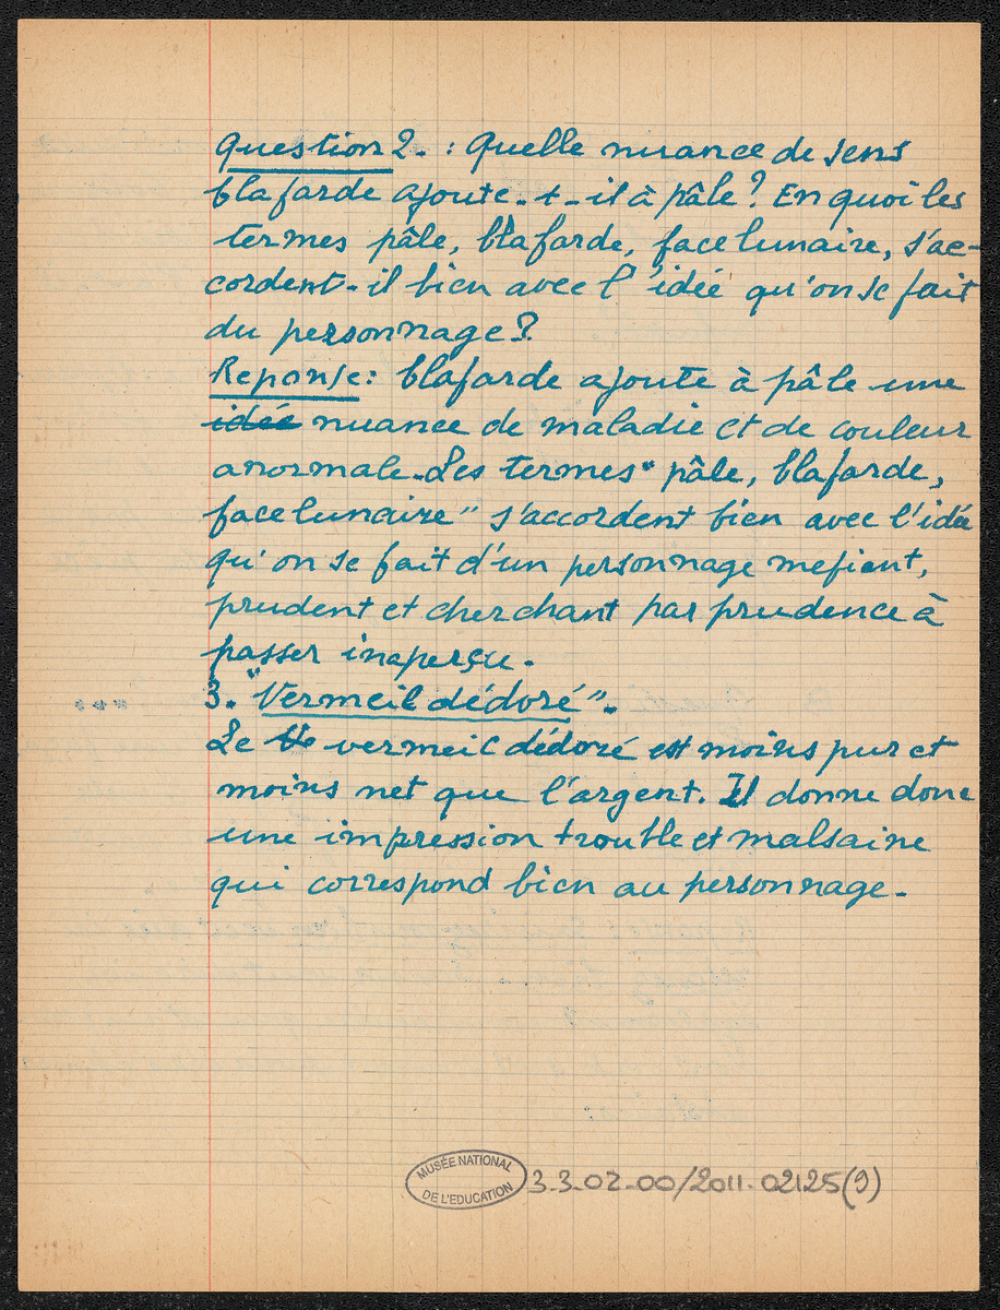 Question 2. : Quelle nuance de sens
blafarde ajoute-t-il à pâle ? En quoi les
termes pâle, blafarde, face lunaire, s'ac-
cordent-il bien avec l'idée qu'on se fait
du personnage ?
Reponse : blafarde ajoute à pâle une
idée nuance de maladie et de couleur
anormale. Les termes " pâle, blafarde,
face lunaire" s'accordent bien avec l'idée
qu'on se fait d'un personnage mefiant,
prudent et cherchant par prudence à
passer inaperçu.
3. "Vermeil dédoré".
Le Ve vermeil dédoré est moins pur et
moins net que l'argent. Il donne donc
une impression trouble et malsaine
qui correspond bien au personnage.
MUSÉE NATIONAL
DE L'EDUCATION
3.3.02.00/2011.02125(9)